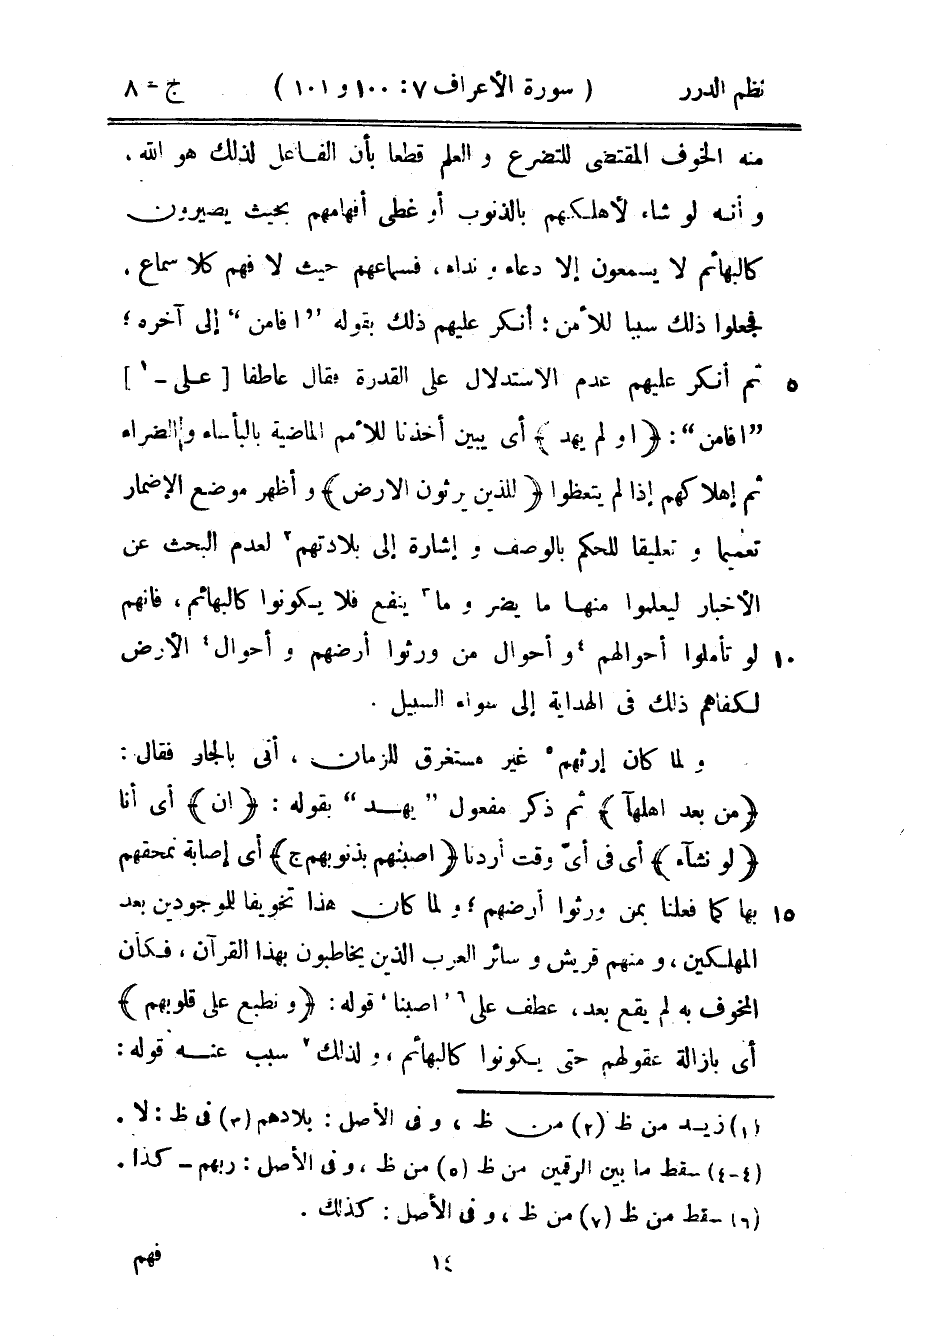 نظم الدرر ( سورة الأعراف ٧ : ١٠٠ و ١٠١ ) ج – ٨
منه الخوف المقتضى للتضرع و العلم قطعا بأن الفاعل لذلك هو الله ،
و أنه لو شاء لأهلكهم بالذنوب أو غطى أفهامهم بحيث يصيرون
كالبهائم لا يسمعون إلا دعاء و نداء ، فسماعهم حيث لا فهم كلا سماع ،
فجعلوا ذلك سببا للأمن ؛ أنكر عليهم ذلك بقوله ”افامن“ إلى آخره ؛
٥ ثم أنكر عليهم عدم الاستدلال على القدرة فقال عاطفا [ على –١ ]
”افامن“ : ﴿ او لم يهد ﴾ أى يبين أخذنا للأمم الماضية بالبأساء و الضراء
ثم إهلاكهم إذا لم يتعظوا ﴿ للذين يرثون الارض ﴾ و أظهر موضع الإضمار
تعميما و تعليقا للحكم بالوصف و إشارة إلى بلادتهم٢ لعدم البحث عن
الأخبار ليعلموا منها ما يضر و ما٣ ينفع فلا يكونوا كالبهائم ، فانهم
١٠ لو تأملوا أحوالهم ٤و أحوال من ورثوا أرضهم و أحوال٤ الأرض
لكفاهم ذلك فى الهداية إلى سواء السبيل .
و لما كان إرثهم٥ غير مستغرق للزمان ، أتى بالجار فقال :
﴿ من بعد اهلهآ ﴾ ثم ذكر مفعول ”يهد“ بقوله : ﴿ ان ﴾ أى أنا
﴿ لو نشآء ﴾ أى فى أىّ وقت أردنا ﴿ اصبنٰهم بذنوبهم ج ﴾ أى إصابة نمحقهم
١٥ بها كما فعلنا بمن ورثوا أرضهم ؛ و لما كان هذا تخويفا للموجودين بعد
المهلكين ، و منهم قريش و سائر العرب الذين يخاطبون بهذا القرآن ، فكأن
المخوف به لم يقع بعد ، عطف على٦ ’اصبنا‘ قوله : ﴿ و نطبع على قلوبهم ﴾
أى بازالة عقولهم حتى يكونوا كالبهائم ، و لذلك٧ سبب عنه قوله :
(١) زيد من ظ (٢) من ظ ، و فى الأصل : بلادهم (٣) فى ظ : لا .
(٤-٤) سقط ما بين الرقمين من ظ (٥) من ظ ، و فى الأصل : ربهم – كذا .
(٦) سقط من ظ (٧) من ظ ، و فى الأصل : كذلك .
١٤ فهم